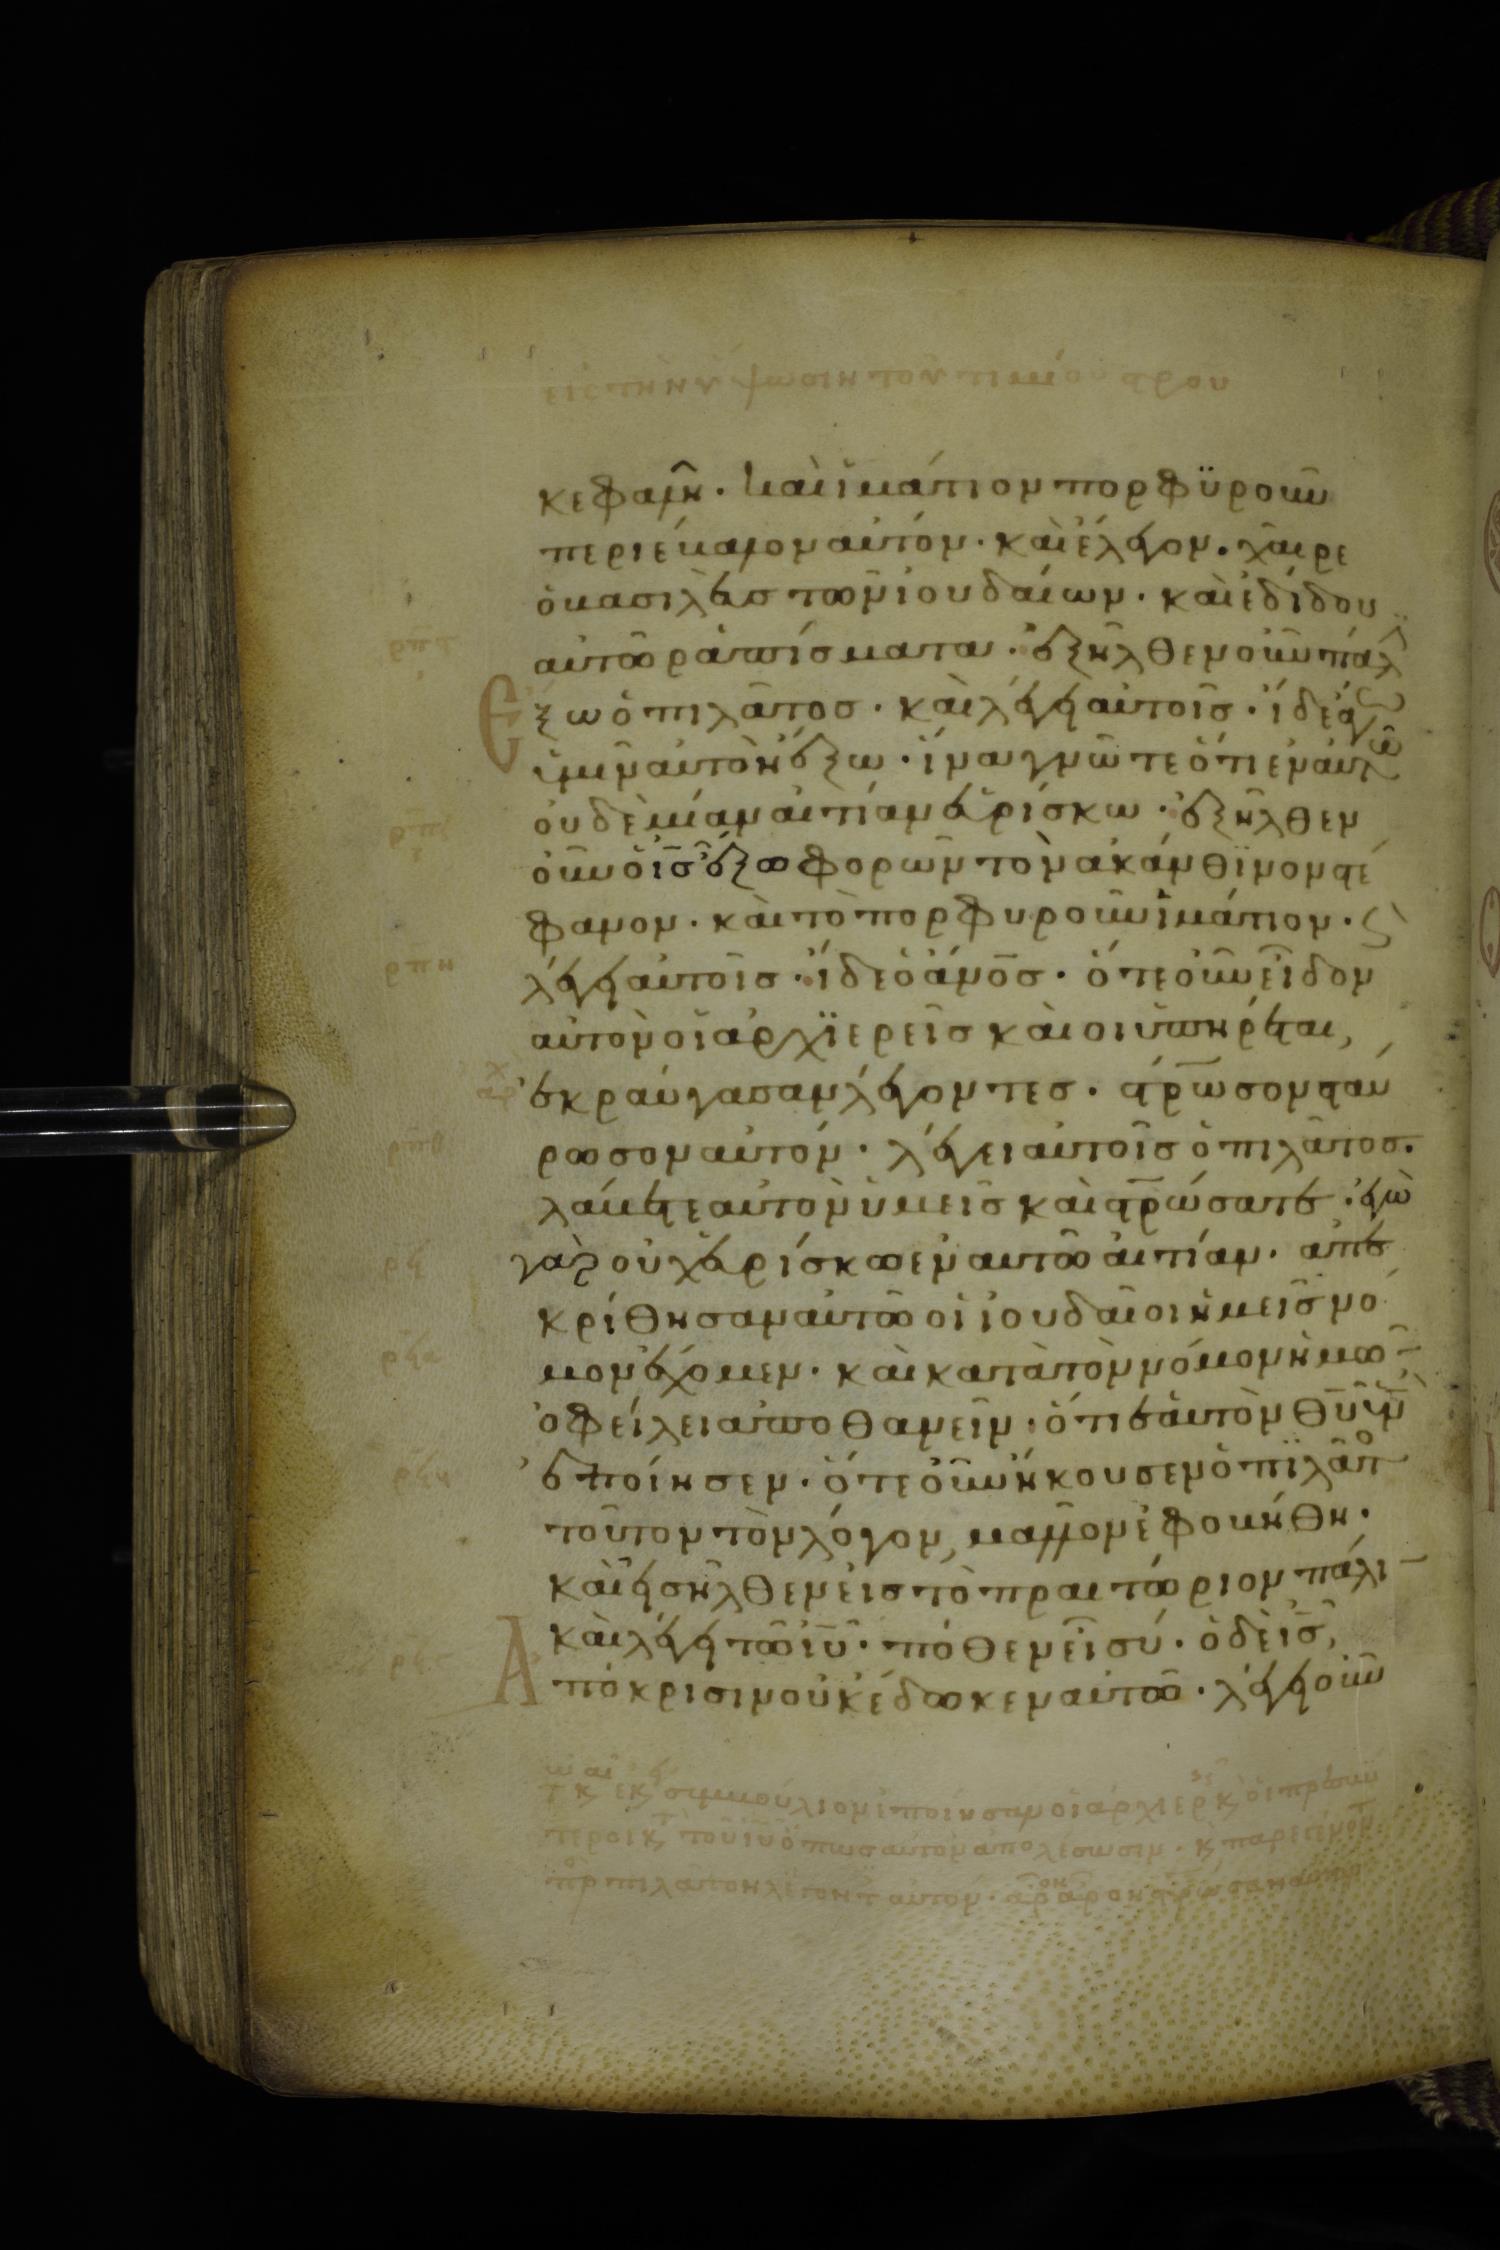 εἰς τὴν ὕψωσιν τοῦ τιμίου στρου
κεφαλῆ· καὶ ἱμάτιον πορφϋροῦν
περιέβαλον αὐτόν· καὶ ἔλεγον· χαῖρε
ὁ βασιλεὺς τῶν ἰουδαίων· καὶ ἐδίδου
αὐτῶ ῥαπίσματα· ἐξῆλθεν οὖν πάλ
ἔξω ὁ πιλᾶτος· καὶ λέγει αὐτοῖς· ἴδε ἄγω
ὑμῖν αὐτὸν ἔξω· ἵνα γνῶτε ὅτι ἐν αὐτῶ
οὐδεμίαν αἰτίαν εὑρίσκω· ἐξῆλθεν
οὖν ὁ ι̅ς̅ ἔξω φορῶν τὸν ἀκάνθϊνον στέ
φανον· καὶ τὸ πορφυροῦν ἱμάτιον· ϗ
λέγει αὐτοῖς· ἴδε ὁ ἄν̅ο̅ς̅· ὅτε οὖν εἶδον
αὐτὸν οἱ ἀρχϊερεῖς καὶ οἱ ὑπηρέται,
ἐκραύγασαν λέγοντες· στρ̅ωσον σταύ
ρωσον αὐτόν· λέγει αὐτοῖς ὁ πιλᾶτος·
λάβετε αὐτὸν ὑμεῖς καὶ στρ̅ώσατε· ἐγὼ
γὰρ οὐχ εὑρίσκω ἐν αὐτῶ αἰτίαν· ἀπε
κρίθησαν αὐτῶ οἱ ἰουδαῖοι ἡμεῖς νό
μον ἔχομεν· καὶ κατὰ τὸν νόμον ἡμῶ̅
ὀφείλει ἀποθανεῖν· ὅτι ἑαυτὸν θ̅υ̅ υ̅ν̅
ἐποίησεν· ὅτε οὖν ἤκουσεν ὁ πϊλᾶτο
τοῦτον τὸν λόγον, μᾶλλον ἐφοβήθη·
καὶ εἰσῆλθεν εἰς τὸ πραιτώριον πάλι̅
καὶ λέγει τῶ ι̅υ̅· πόθεν εἶ σύ· ὁ δὲ ι̅ς̅,
ἀπόκρισιν οὐκ ἔδωκεν αὐτῶ· λέγει οὖν